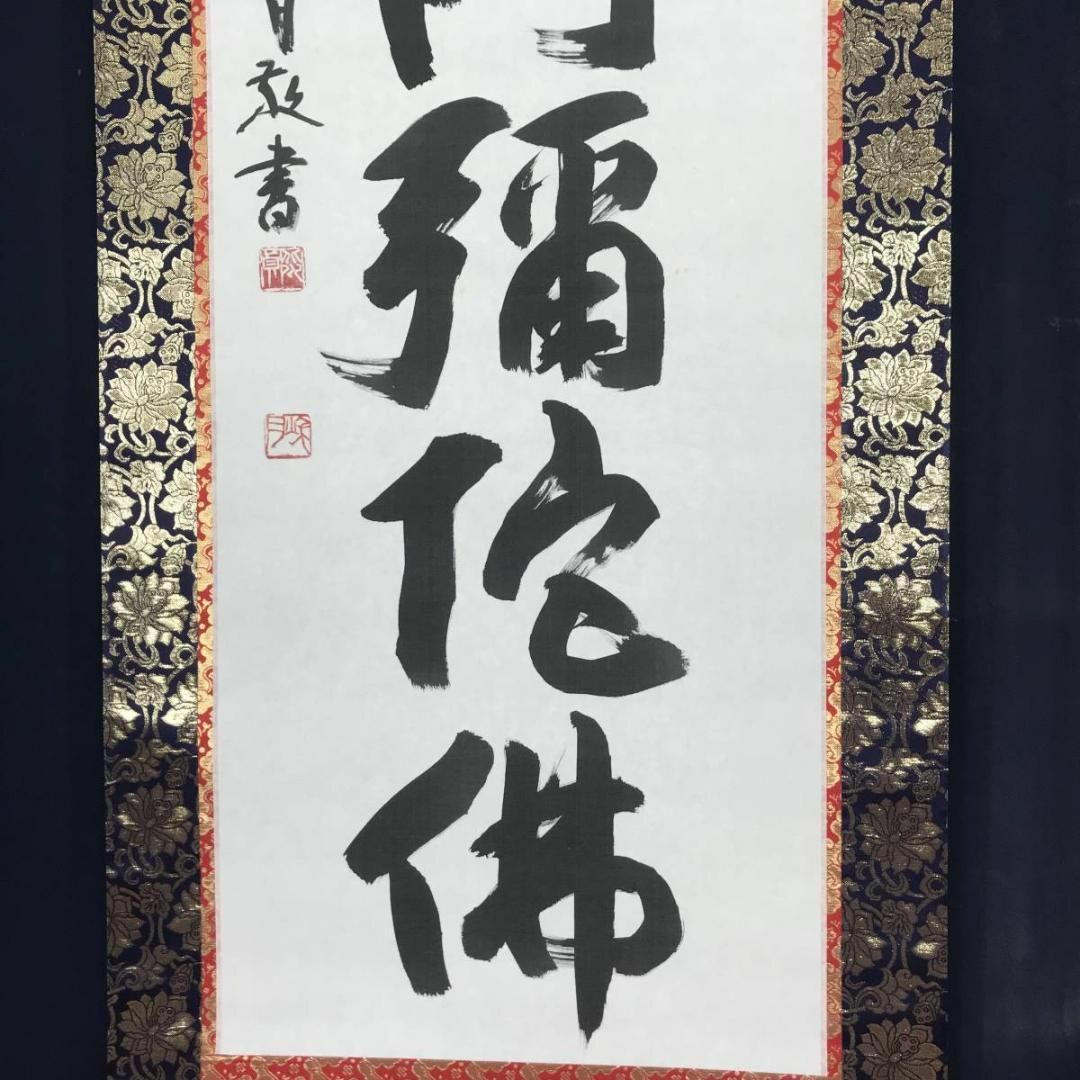 阿彌陀佛
敬書